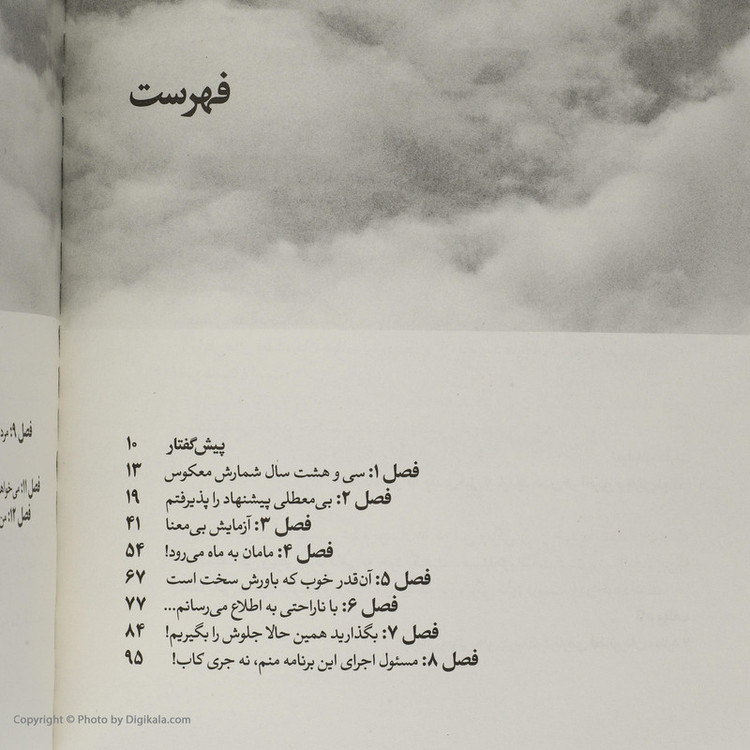 فهرست
پیش‌گفتار ۱۰
فصل ۱: سی و هشت سال شمارش معکوس ۱۳
فصل ۲: بی‌معطلی پیشنهاد را پذیرفتم ۱۹
فصل ۳: آزمایش بی‌معنا ۴۱
فصل ۴: مامان به ماه می‌رود! ۵۴
فصل ۵: آن‌قدر خوب که باورش سخت است ۶۷
فصل ۶: با ناراحتی به اطلاع می‌رسانم... ۷۷
فصل ۷: بگذارید همین حالا جلوش را بگیریم! ۸۴
فصل ۸: مسئول اجرای این برنامه منم، نه جری کاب! ۹۵
فصل ۹: مرد
فصل ۱۱: می‌خواه
فصل ۱۲: من
Copyright © Photo by Digikala.com